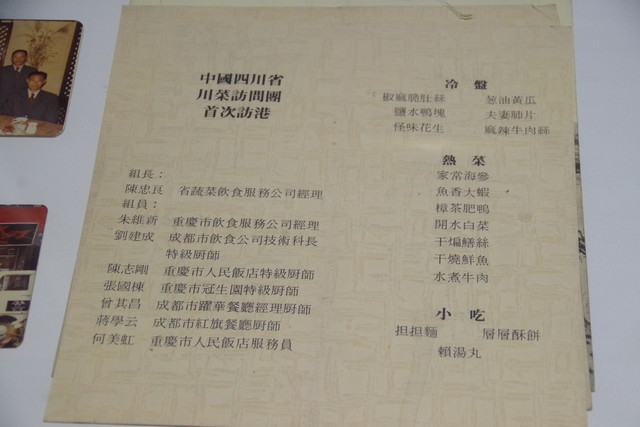 中國四川省
川菜訪問團
首次訪港
組長：
陳忠良 省蔬菜飲食服務公司經理
組員：
朱維新 重慶市飲食服務公司經理
劉建成 成都市飲食公司技術科長
特級厨師
陳志剛 重慶市人民飯店特級厨師
張國棟 重慶市冠生園特級厨師
曾其昌 成都市躍華餐廳經理厨師
蔣學云 成都市紅旗餐廳厨師
何美虹 重慶市人民飯店服務員
冷盤
椒麻肚絲 葱油黃瓜
鹽水鴨塊 夫妻肺片
怪味花生 麻辣牛肉絲
熱菜
家常海參
魚香大蝦
樟茶肥鴨
開水白菜
干煸鱔絲
干燒鮮魚
水煮牛肉
小吃
担担麵 層層酥餅
賴湯丸